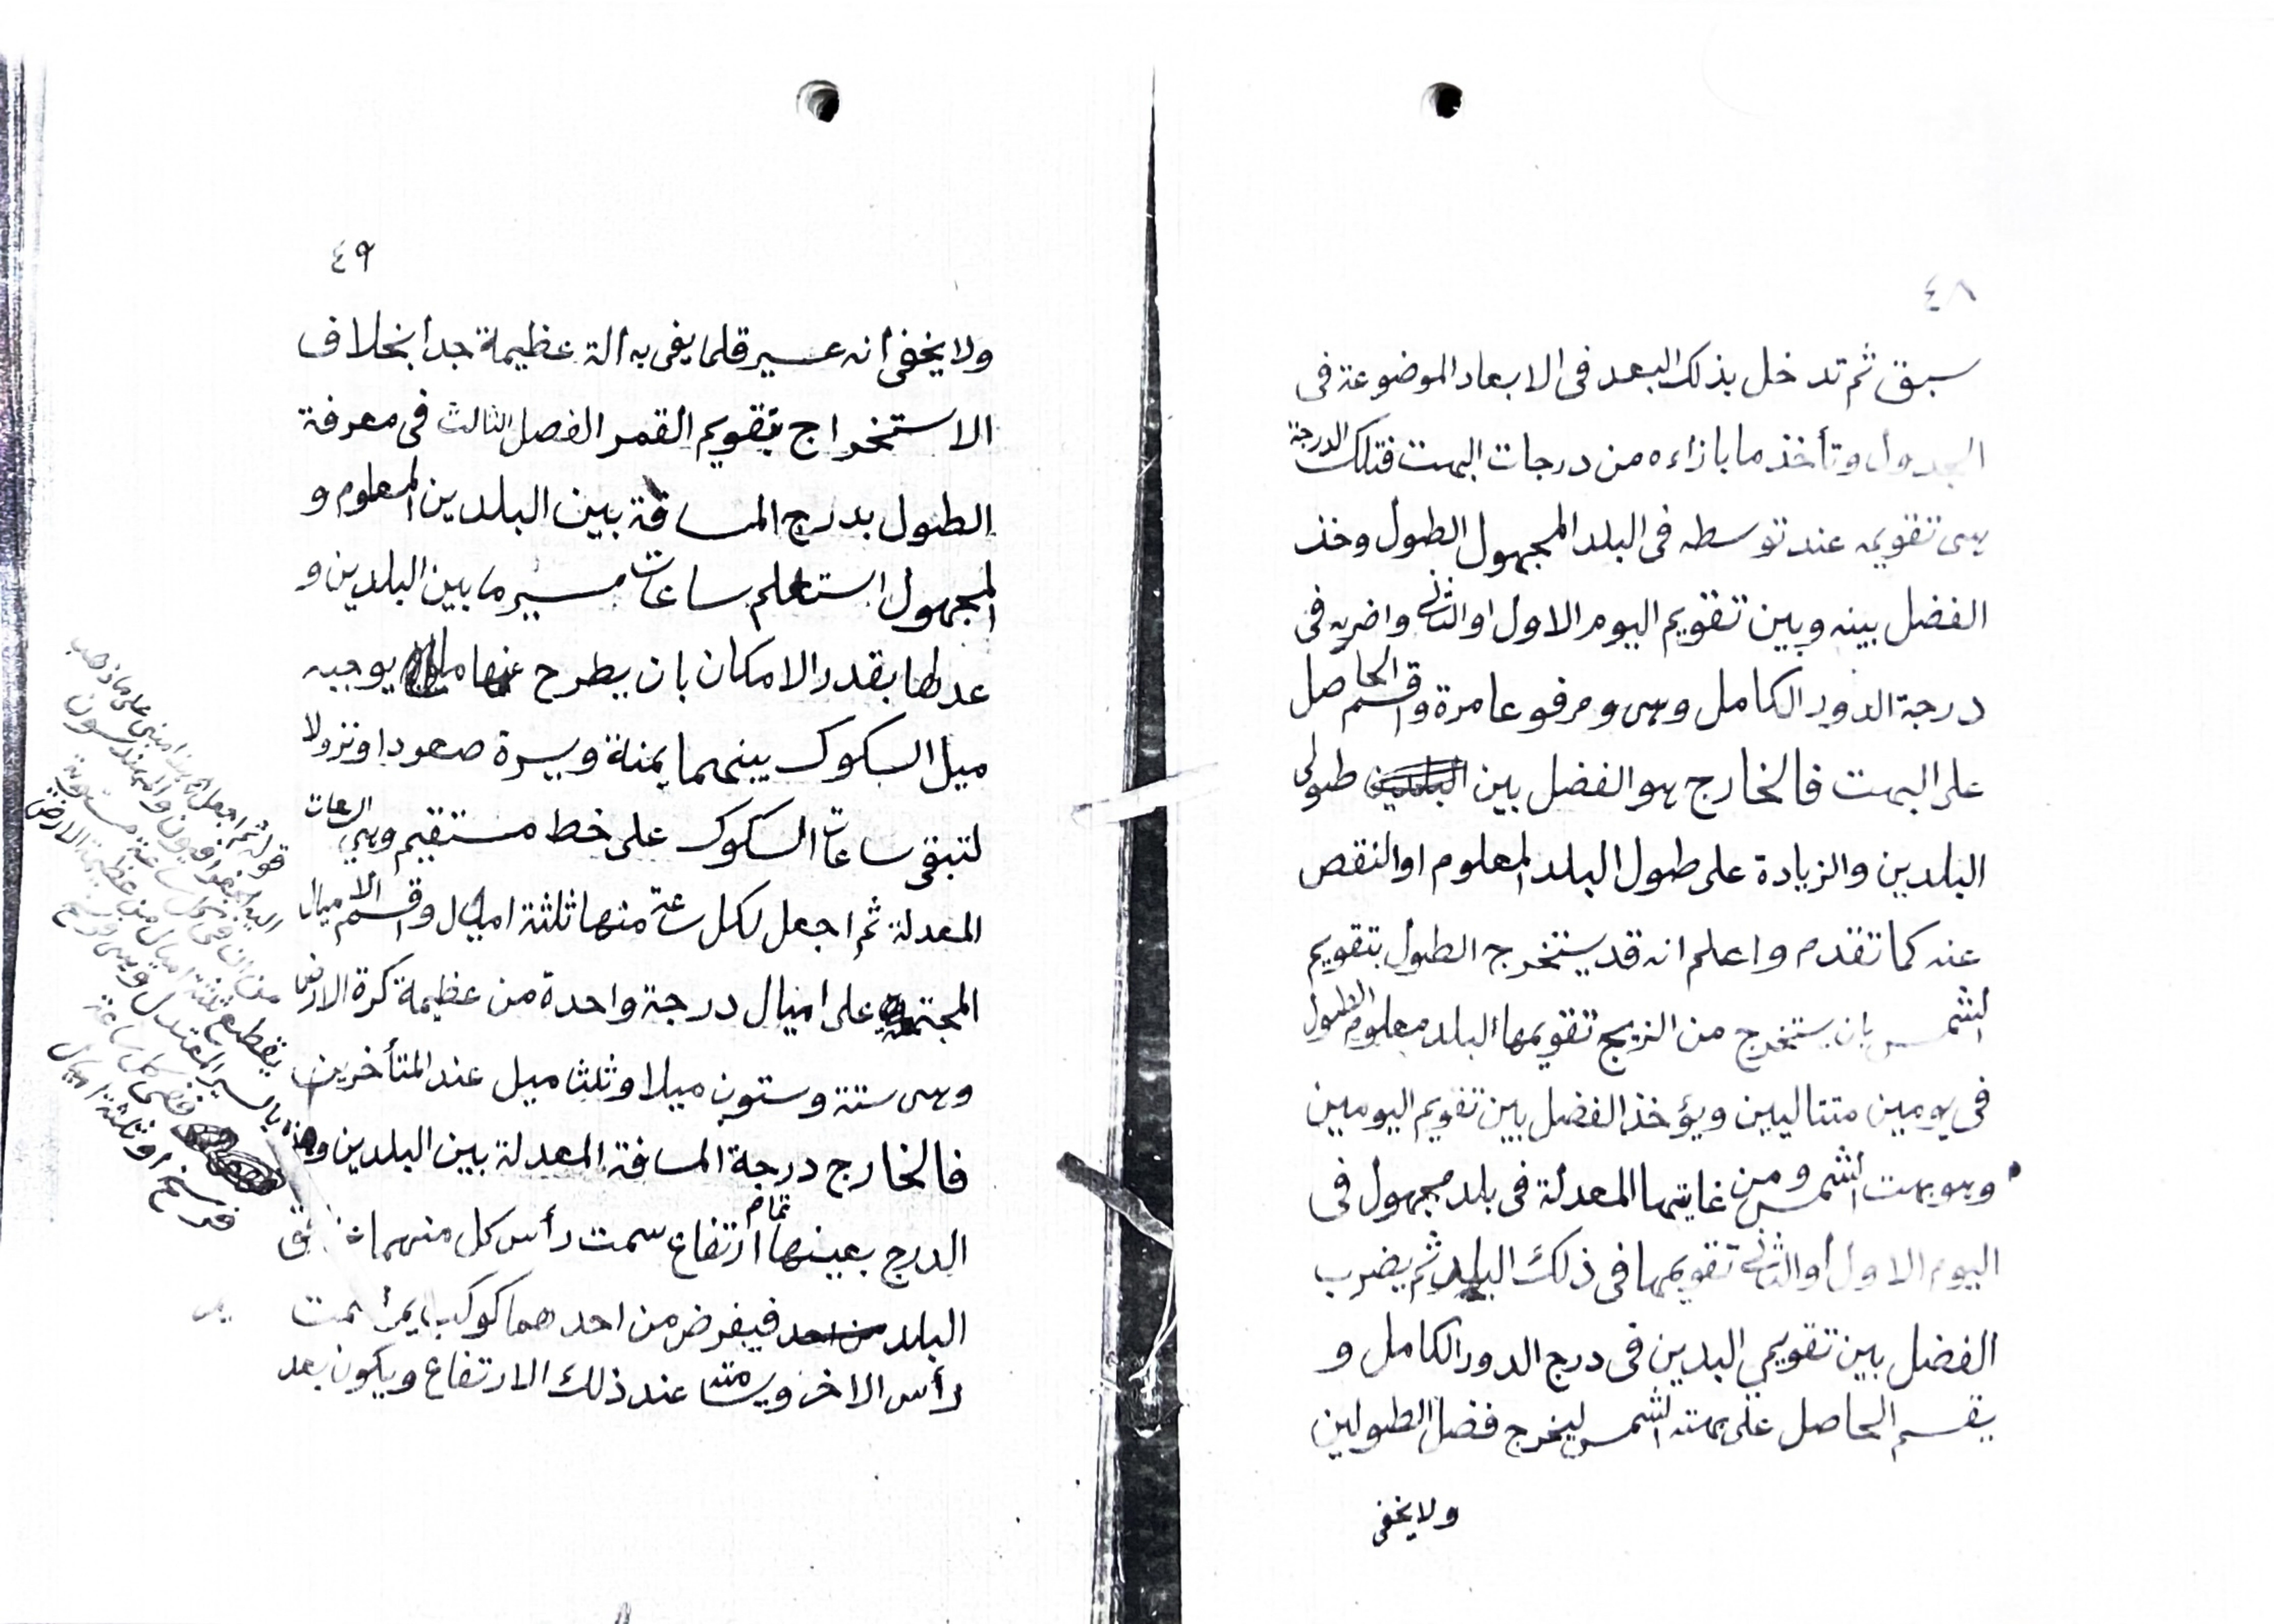 ٤٨
سبق ثم تدخل بذلك البعد فى الابعاد الموضوعة فى
الجدول وتأخذ ما بازاءه من درجات البهت فتلك الدرجة
هى تقويمه عند توسطه فى البلد المجهول الطول وخذ
الفضل بينه وبين تقويم اليوم الاول او الثانى واضربه فى
درجة الدور الكامل وهى و مرفوعا مرة واقسم الحاصل
على البهت فالخارج هو الفضل بين طولى
البلدين والزيادة على طول البلد المعلوم او النقص
عنه كما تقدم واعلم انه قد يستخرج الطول بتقويم
الشمس بان يستخرج من الزيج تقويمها البلد معلوم الطول
فى يومين متتاليين ويؤخذ الفضل بين تقويم اليومين
وهو بهت الشمس ومن غايتها المعدلة فى بلد مجهول فى
اليوم الاول أو الثانى تقويمها فى ذلك البلد ثم يضرب
الفضل بين تقويمي البدين فى درج الدور الكامل و
يقسم الحاصل على بهته الشمس ليخرج فضل الطولين
ولا يخفى
٤٩
ولا يخفى أنه عسير قلما يفى به ألة عظيمة جدا بخلاف
الاستخراج بتقويم القمر الفصل الثالث فى معرفة
الطول بدرج المسافة بين البلدين المعلوم و
المجهول استعلم ساعات مسير ما بين البلدين و
عدلها بقدر الامكان بان يطرح عنها ما يوجبه
ميل السكوك بينهما يمنة ويسرة صعودا ونزولا
لتبقى ساعات السكوك على خط مستقيم وهي الساعات
المعدلة ثم اجعل لكل ساعة منها ثلثة اميال واقسم الاميال
المجتمعة على اميال درجة واحدة من عظيمة كرة الارض
وهى ستة وستون ميلا وثلثا ميل عند المتأخرين
فالخارج درجة المسافة المعدلة بين البلدين وهذه
الدرج بعينها تمام ارتفاع سمت رأس كل منهما
البلد فيفرض من احدهما كوكب يمر سمت
رأس الاخر ويسامته عند ذلك الارتفاع ويكون بعد
قوله ثم اجعل هذا مبنى على ما ذهب
اليه الجغرافيون والمهندسون
من ان فى كل ساعة مستوية
يقطع ثلثة اميال من عظيمة الارض
بالسير المعتدل وهى فرسخ
ففى كل ساعة
فرسخ او ثلثة اميال